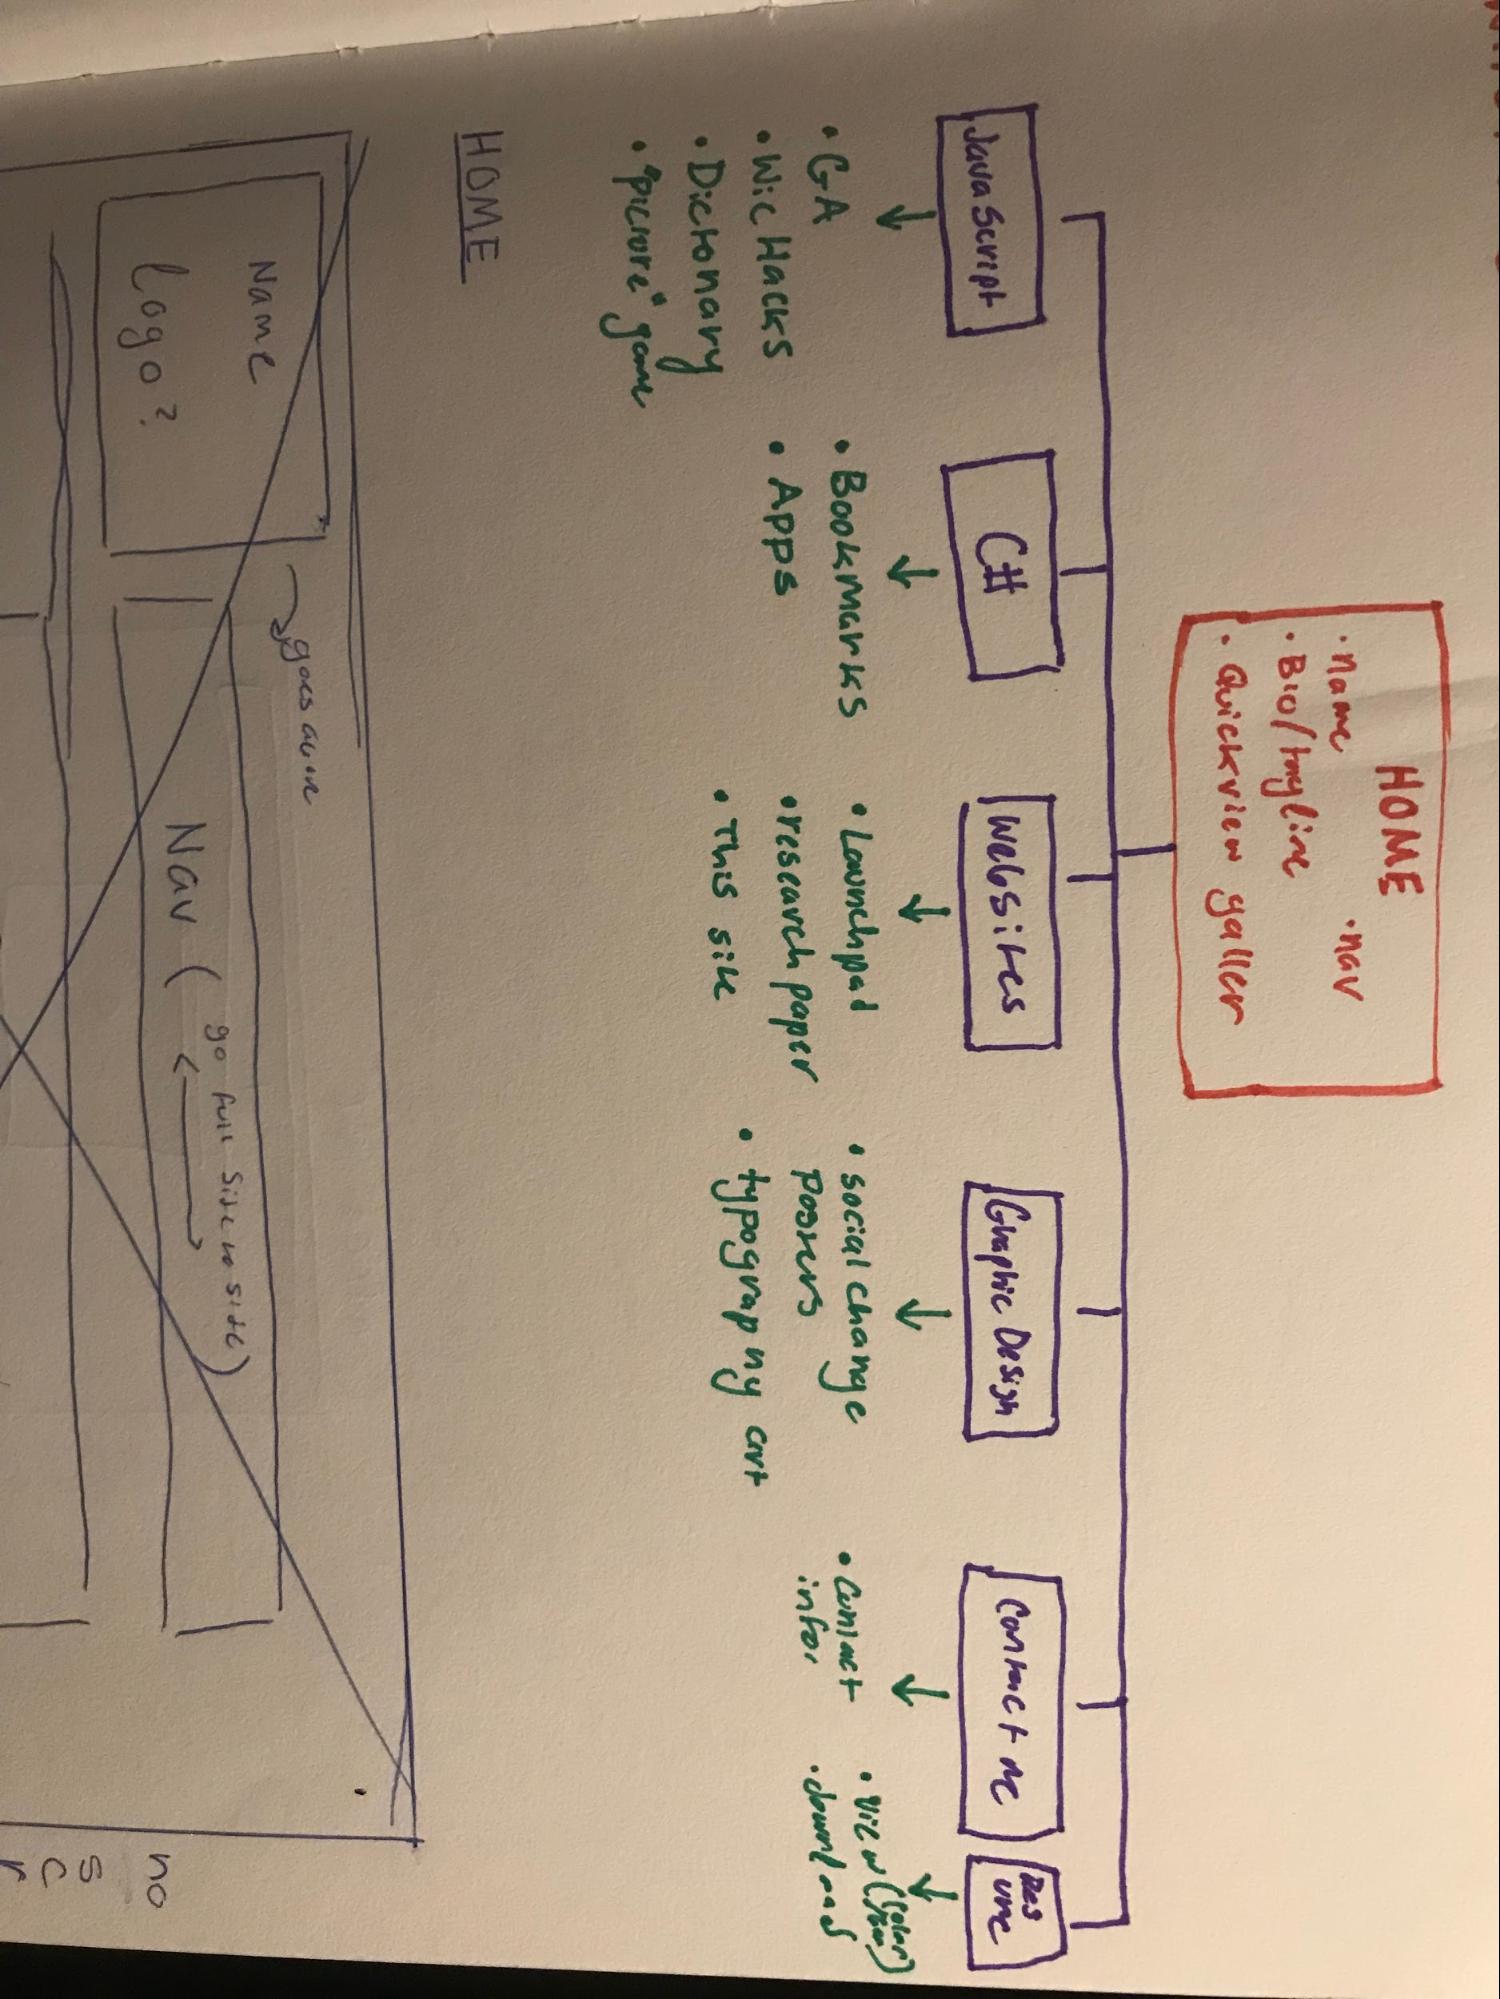 HOME
• name • nav
• Bio/tagline
• Quickview galler
JavaScript
• GA
• WicHacks
• Dictonary
• "picture" game
C#
• Bookmarks
• Apps
Websites
• Launchpad
• research paper
• This site
Graphic Design
• social change
posters
• typography art
Contact me
• Contact
infor
Res
ume
• View (
• download
HOME
Name
Logo?
goes
Nav (go full side to side)
no
sc
r